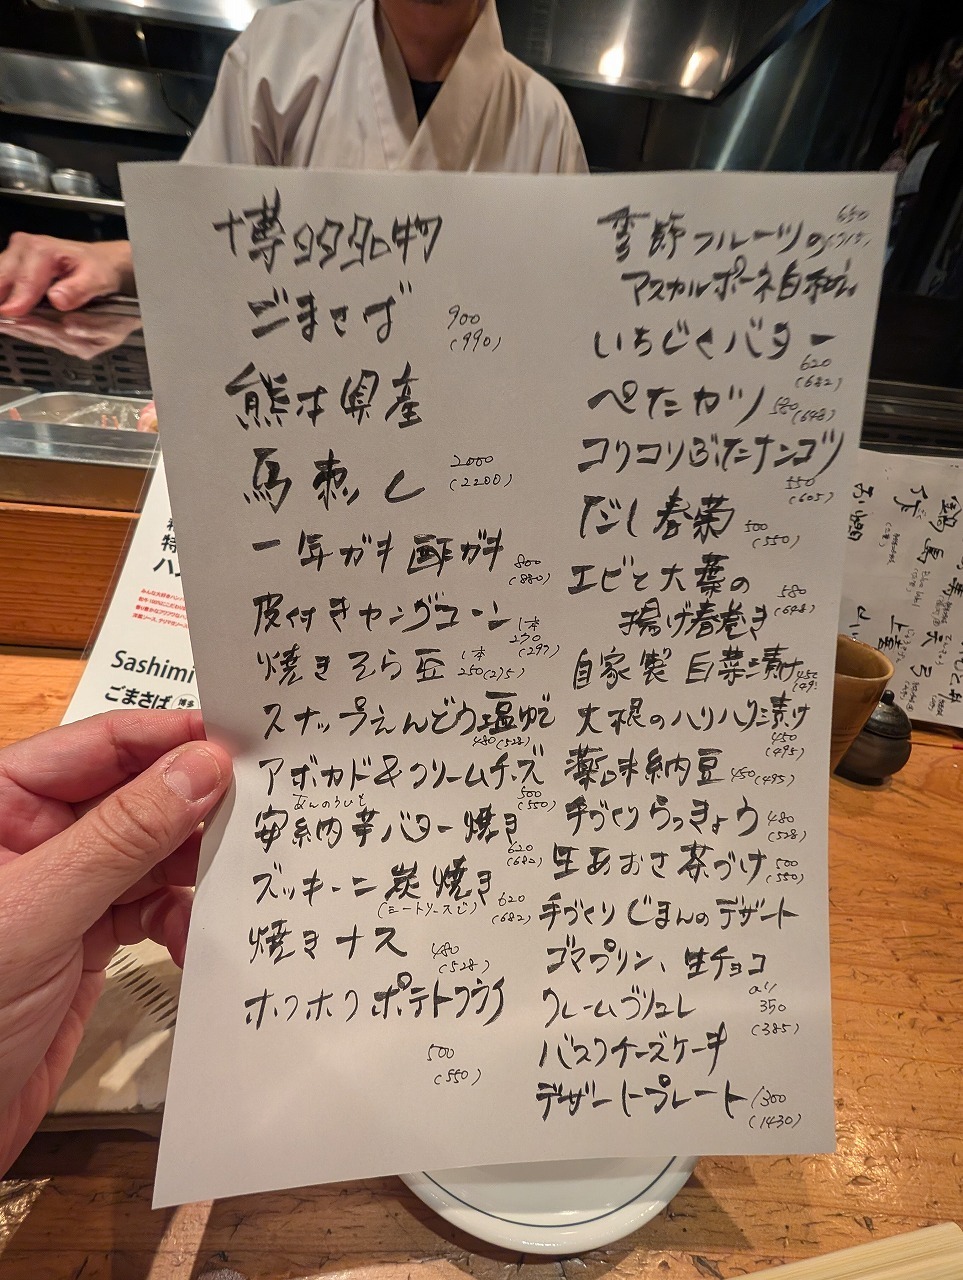 博多名物
ごまさば 900
(990)
熊本県産
馬刺し 2000
(2200)
一年ガキ酢ガキ 800
(880)
皮付きヤングコーン 1本
270
(297)
焼きそら豆 1本
250(275)
スナップえんどう塩ゆで
480(528)
アボカド&クリームチーズ
500
(550)
あんのういも
安納芋バター焼き
620
(682)
ズッキーニ炭焼き
(ミートソースで) 620
(682)
焼きナス 480
(528)
ホクホクポテトフライ
500
(550)
季節フルーツの 650
(715)
マスカルポーネ白和え
いちじくバター
620
(682)
ぺたガツ 580(648)
コリコリぶたナンコツ
550
(605)
だし春菊 500
(550)
エビと大葉の 580
(648)
揚げ春巻き
自家製白菜漬け 450
(495
大根のハリハリ漬け
450
(495)
薬味納豆 450(495)
手づくりらっきょう 480
(528)
生あおさ茶づけ 500
(550)
手づくりじまんのデザート
ゴマプリン、生チョコ
クレームブリュレ
all
350
(385)
バスクチーズケーキ
デザートプレート 1300
(1430)
Sashimi
ごまさば 博多